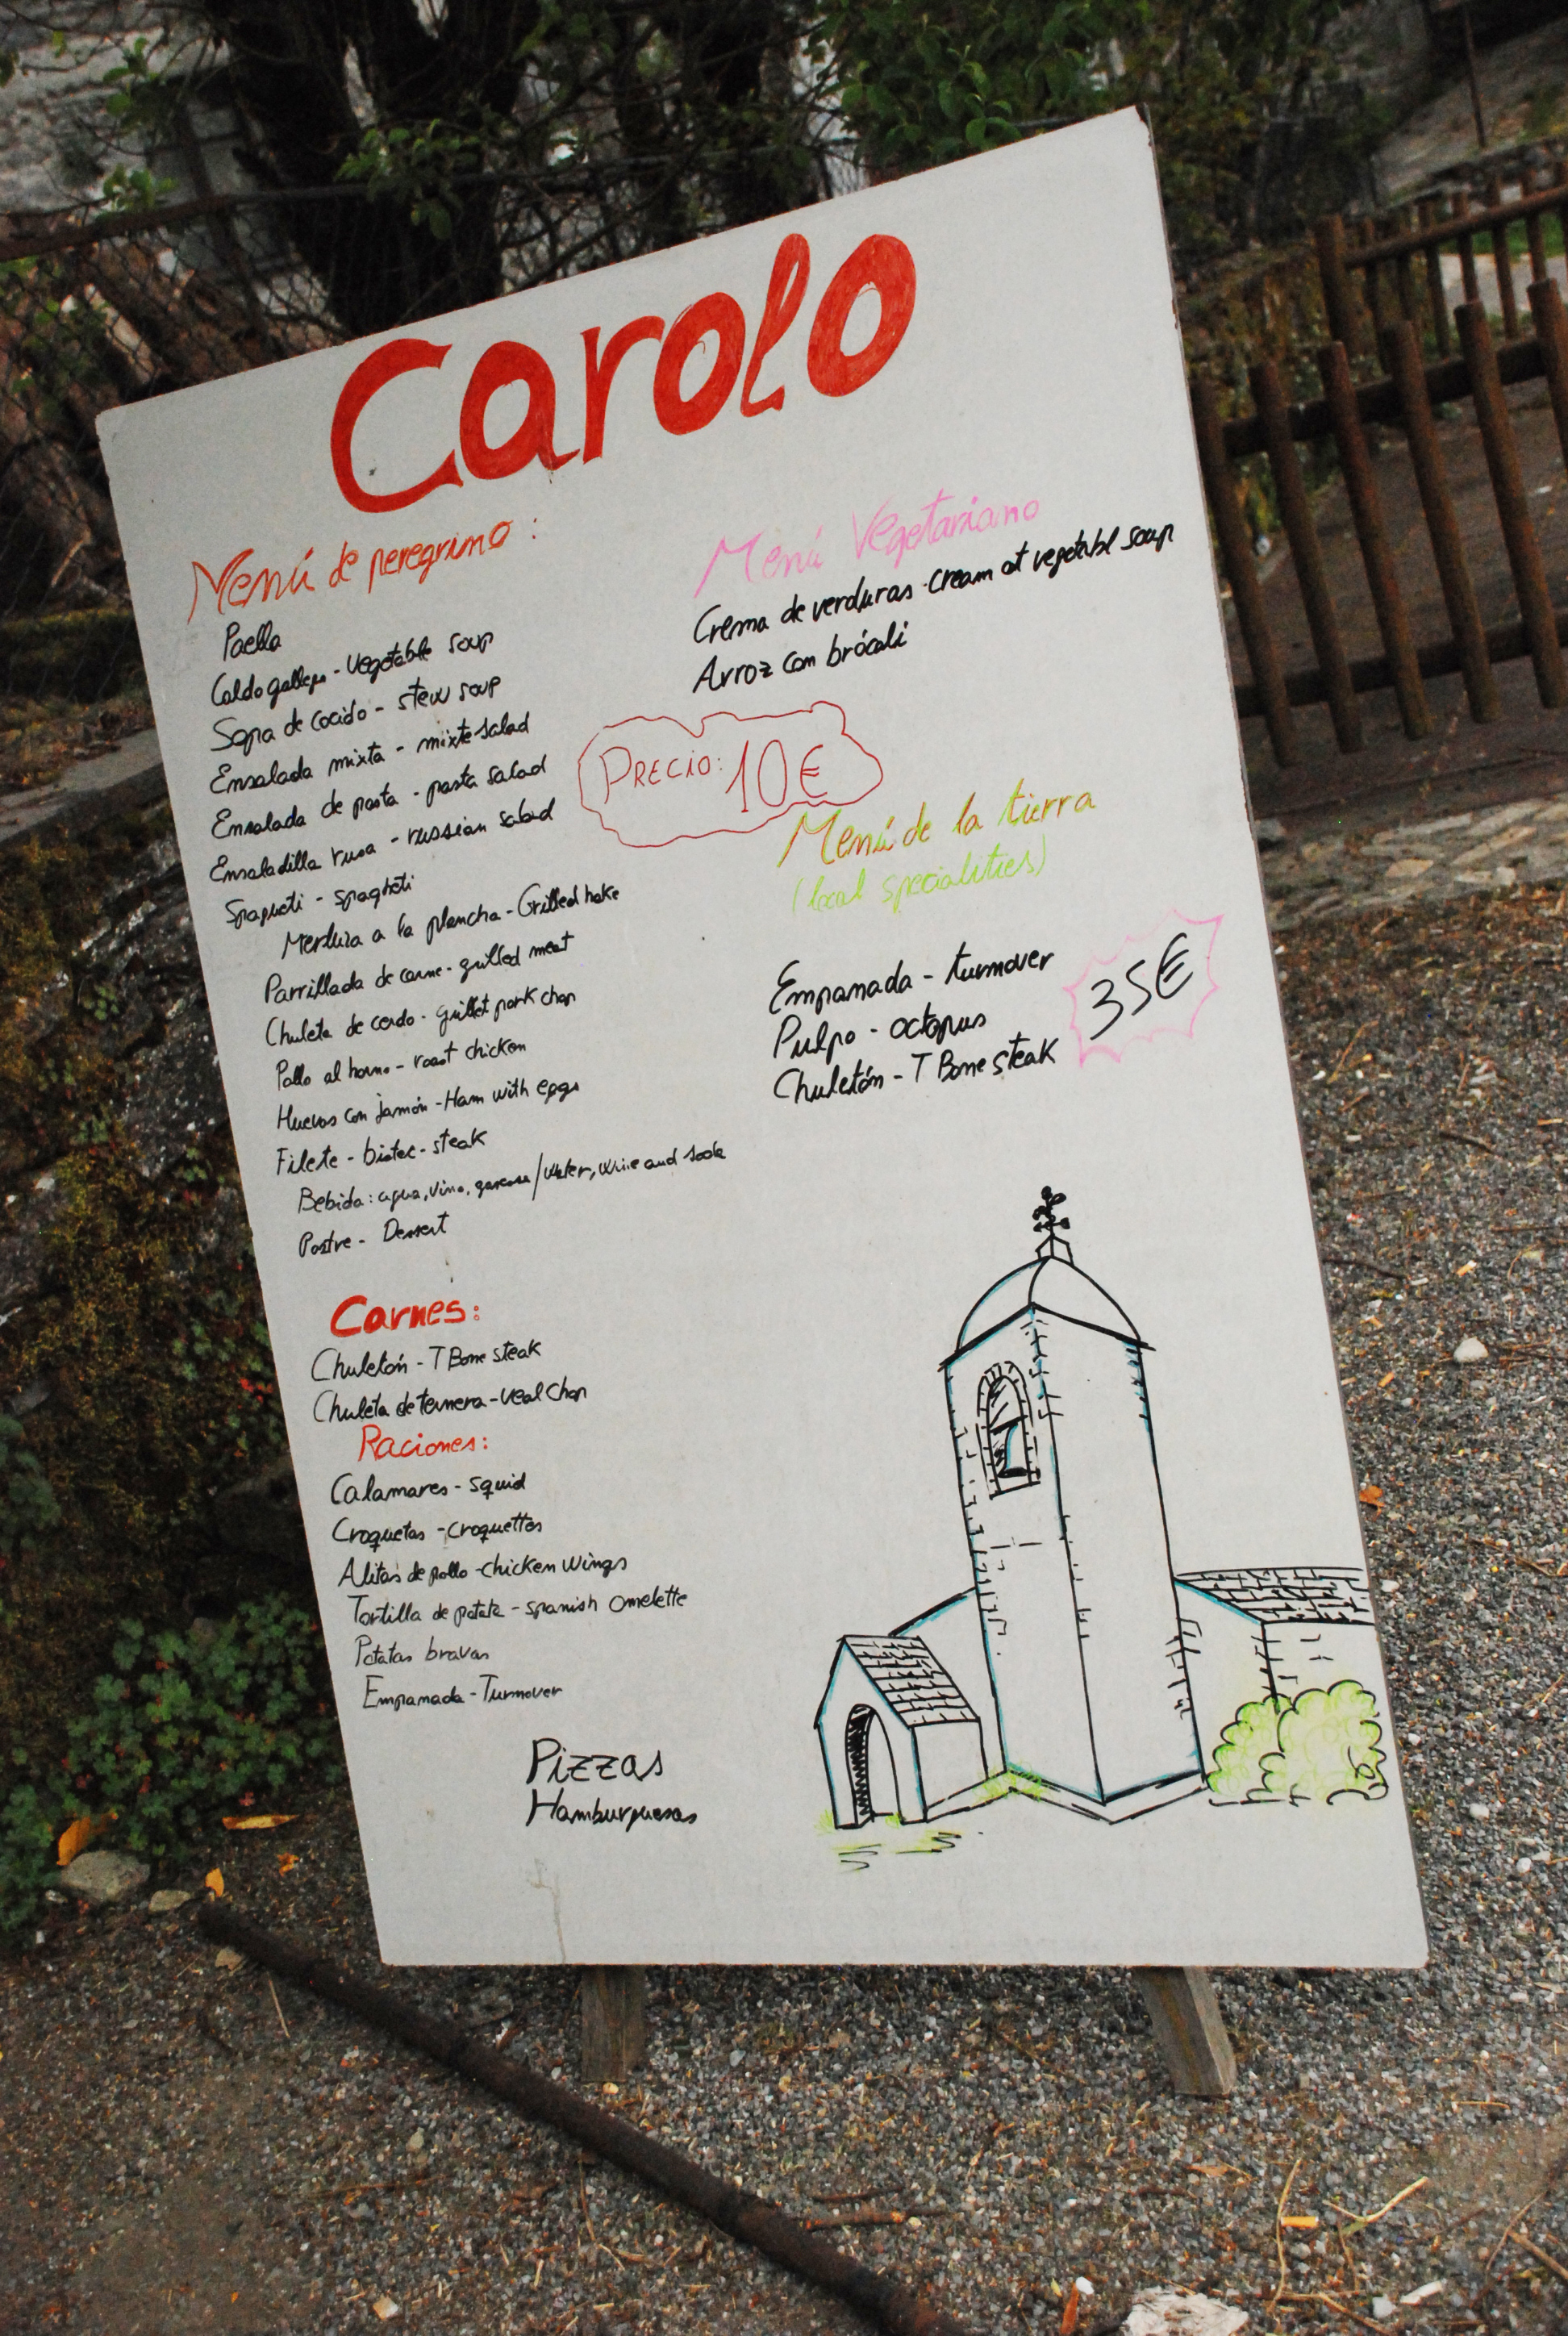 Carolo
Menú de peregrino:
Paella
Caldo gallego - Vegetable soup
Sopa de cocido - stew soup
Ensalada mixta - mixte salad
Ensalada de pasta - pasta salad
Ensaladilla rusa - russian salad
Spagueti - spagheti
Merluza a la plancha - Grilled hake
Parrillada de carne - grilled meat
Chuleta de cerdo - grillet pork chop
Pollo al horno - roast chicken
Huevos con jamón - Ham with eggs
Filete - bistec - steak
Bebida: agua, vino, gaseosa / Water, Wine and soda
Postre - Dessert
Carnes:
Chuletón - T Bone steak
Chuleta de ternera - veal chop
Raciones:
Calamares - squid
Croquetas - croquettes
Alitas de pollo - chicken wings
Tortilla de patata - spanish omelette
Patatas bravas
Empanada - Turnover
Pizzas
Hamburguesas
Menú Vegetariano
Crema de verduras - cream of vegetabl soup
Arroz con brócoli
PRECIO: 10€
Menú de la tierra
(local specialities)
Empanada - turnover
Pulpo - octopus
Chuletón - T Bone steak
35€